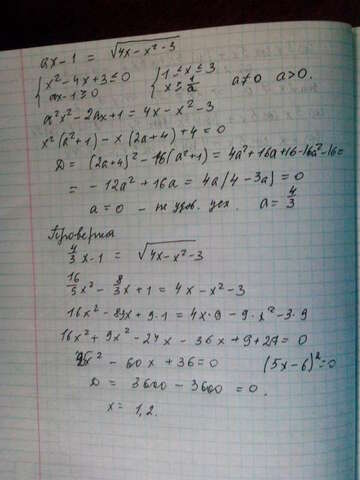 ax-1 = √(4x-x²-3)
{ x²-4x+3≤0 { 1≤x≤3
ax-1≥0 x≥1/a a≠0 a>0.
a²x²-2ax+1=4x-x²-3
x²(a²+1)-x(2a+4)+4=0
D = (2a+4)²-16(a²+1)=4a²+16a+16-16a²-16=
= -12a²+16a = 4a(4-3a)=0
a=0 - не удвл. усл. a=4/3
Проверка
4/3x-1 = √(4x-x²-3)
16/9x²-8/3x+1=4x-x²-3
16x²-24x+9·1=4x·9-9·x²-3·9
16x²+9x²-24x-36x+9+27=0
25x²-60x+36=0 (5x-6)²=0
D = 3600-3600=0.
x=1,2.